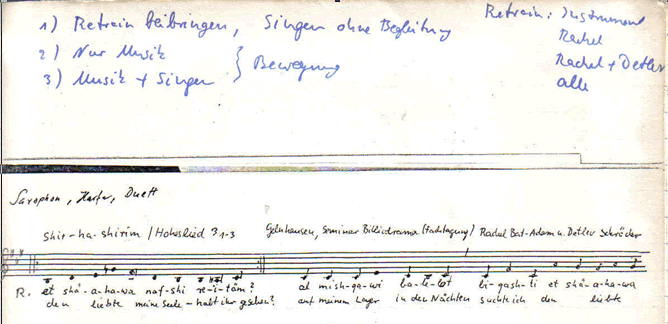 1) Refrain beibringen, Singen ohne Begleitung
2) Nur Musik
3) Musik + Singen } Bewegung
Refrain: Instrument
Rachel
Rachel + Detlev
alle
Saxophon, Harfe, Duett
Shir-ha-shirim / Hoheslied 3 1-3 Gelnhausen, Seminar Bibliodrama (Fachtagung) Rachel Bat-Adam u. Detlev Schröder
R. et shä-a-ha-wa naf-shi re-i-täm? al mish-ga-wi ba-le-lot bi-gash-ti et shä-a-ha-wa
den liebte meine Seele - habt ihr gesehen? auf meinem Lager in den Nächten suchte ich den liebte